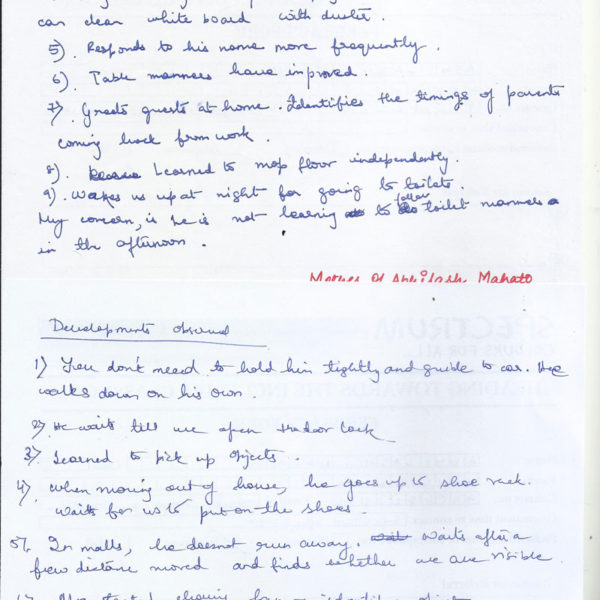 can clean white board with duster.
5). Responds to his name more frequently.
6). Table manners have improved.
7) Greets guests at home. Identifies the timings of parents
coming back from work.
8). Learned to mop floor independently.
9). Wakes us up at night for going to toilets.
My concern, is he is not learning to follow toilet manners
in the afternoon.
Mother Of Abhilash Mahato
Developments observed
1) You don't need to hold him tightly and guide to car. He
walks down on his own.
2) He waits till we open the door lock
3) Learned to pick up objects.
4) When moving out of house, he goes up to shoe rack.
Waits for us to put on the shoes.
5). In malls, he doesnot run away. Waits after a
few distance moved and finds whether we are visible.
SPECTRUM